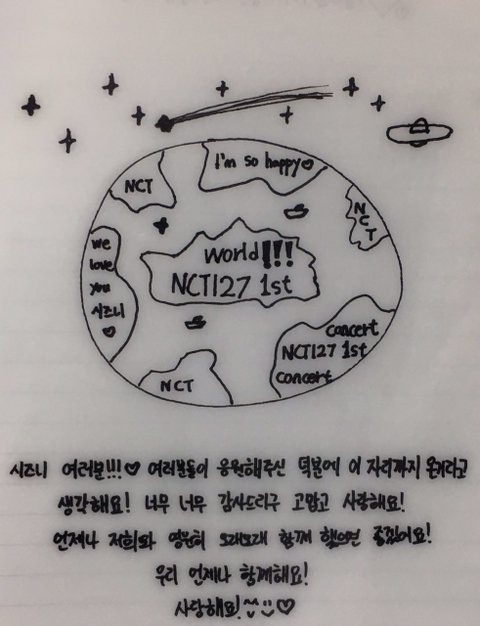 I'm so happy♡
NCT
N
C
T
we
love
you
시즈니
♡
World!!!
NCT127 1st
concert
NCT127 1st
concert
NCT
시즈니 여러분!!!♡ 여러분들이 응원해주신 덕분에 이 자리까지 온거라고
생각해요! 너무 너무 감사드리구 고맙고 사랑해요!
언제나 저희와 영원히 오래오래 함께 했으면 좋겠어요!
우리 언제나 함께해요!
사랑해요!^^☺♡